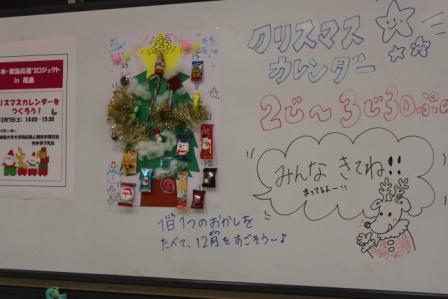 ・家族応援プロジェクト
in 福島
リスマスカレンダーを
つくろう！
12月7日(土) 14:00～15:30
25
クリスマス
カレンダー
2じ～3じ30ぷん
みんな きてね!!
まってるよー!!
1日1つのおかしを
たべて、12月をすごそう～♪